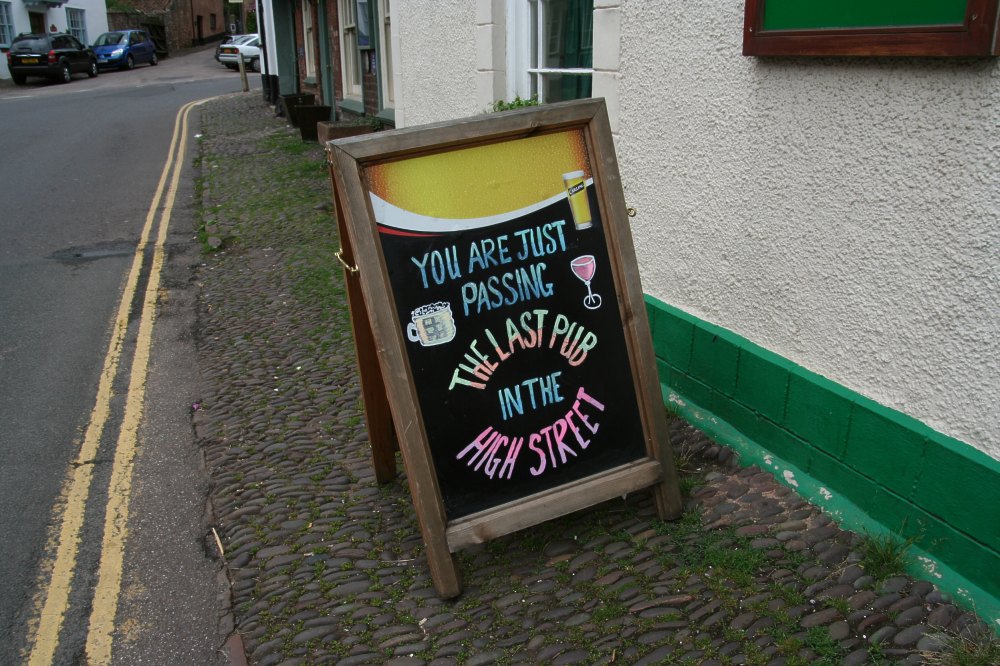 YOU ARE JUST
PASSING
THE LAST PUB
IN THE
HIGH STREET